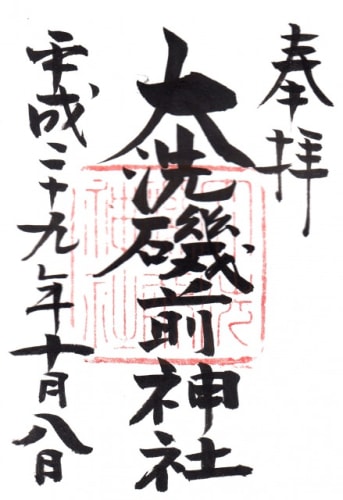 奉拝
大洗磯前神社
平成二十九年十月八日